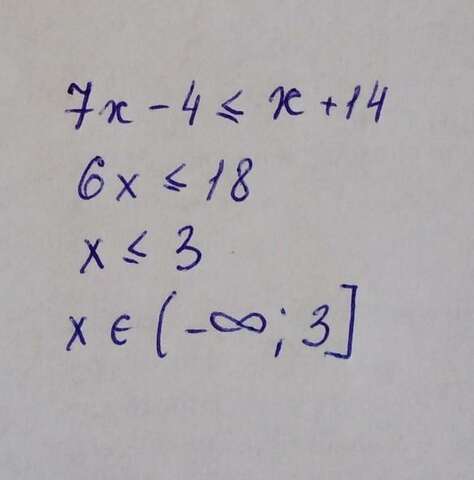 7x - 4 ≤ x + 14
6x ≤ 18
x ≤ 3
x ∈ (-∞; 3]